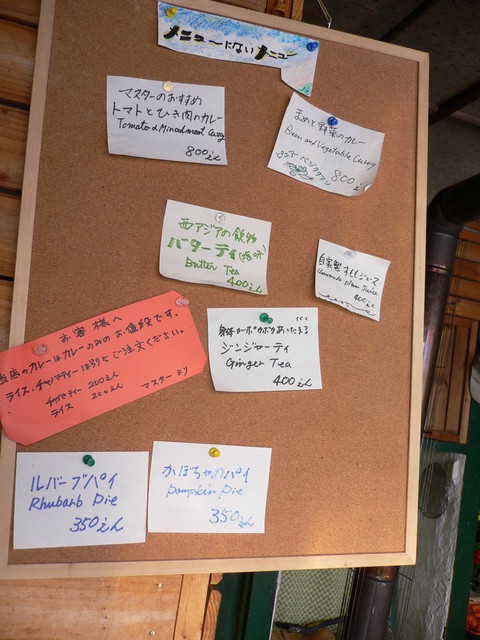 メニューにないメニュー
マスターのおすすめ
トマトとひき肉のカレー
Tomato & Mincedmeat Curry
800えん
まめと野菜のカレー
Bean and Vegetable Curry
ピュアーベジタリアン
800えん
西アジアの飲物
バターティ(塩味)
Butter Tea
400えん
自家製すももジュース
Homemade plum Juice
400えん
身体がポカポカあったまる
ジンジャーティ
Ginger Tea
400えん
お客様へ
当店のカレーはカレーのみのお値段です。
ライス、チャパティーは別々にご注文ください。
チャパティー 200えん
ライス 200えん
マスターより
ルバーブパイ
Rhubarb Pie
350えん
かぼちゃのパイ
pompkin Pie
350えん